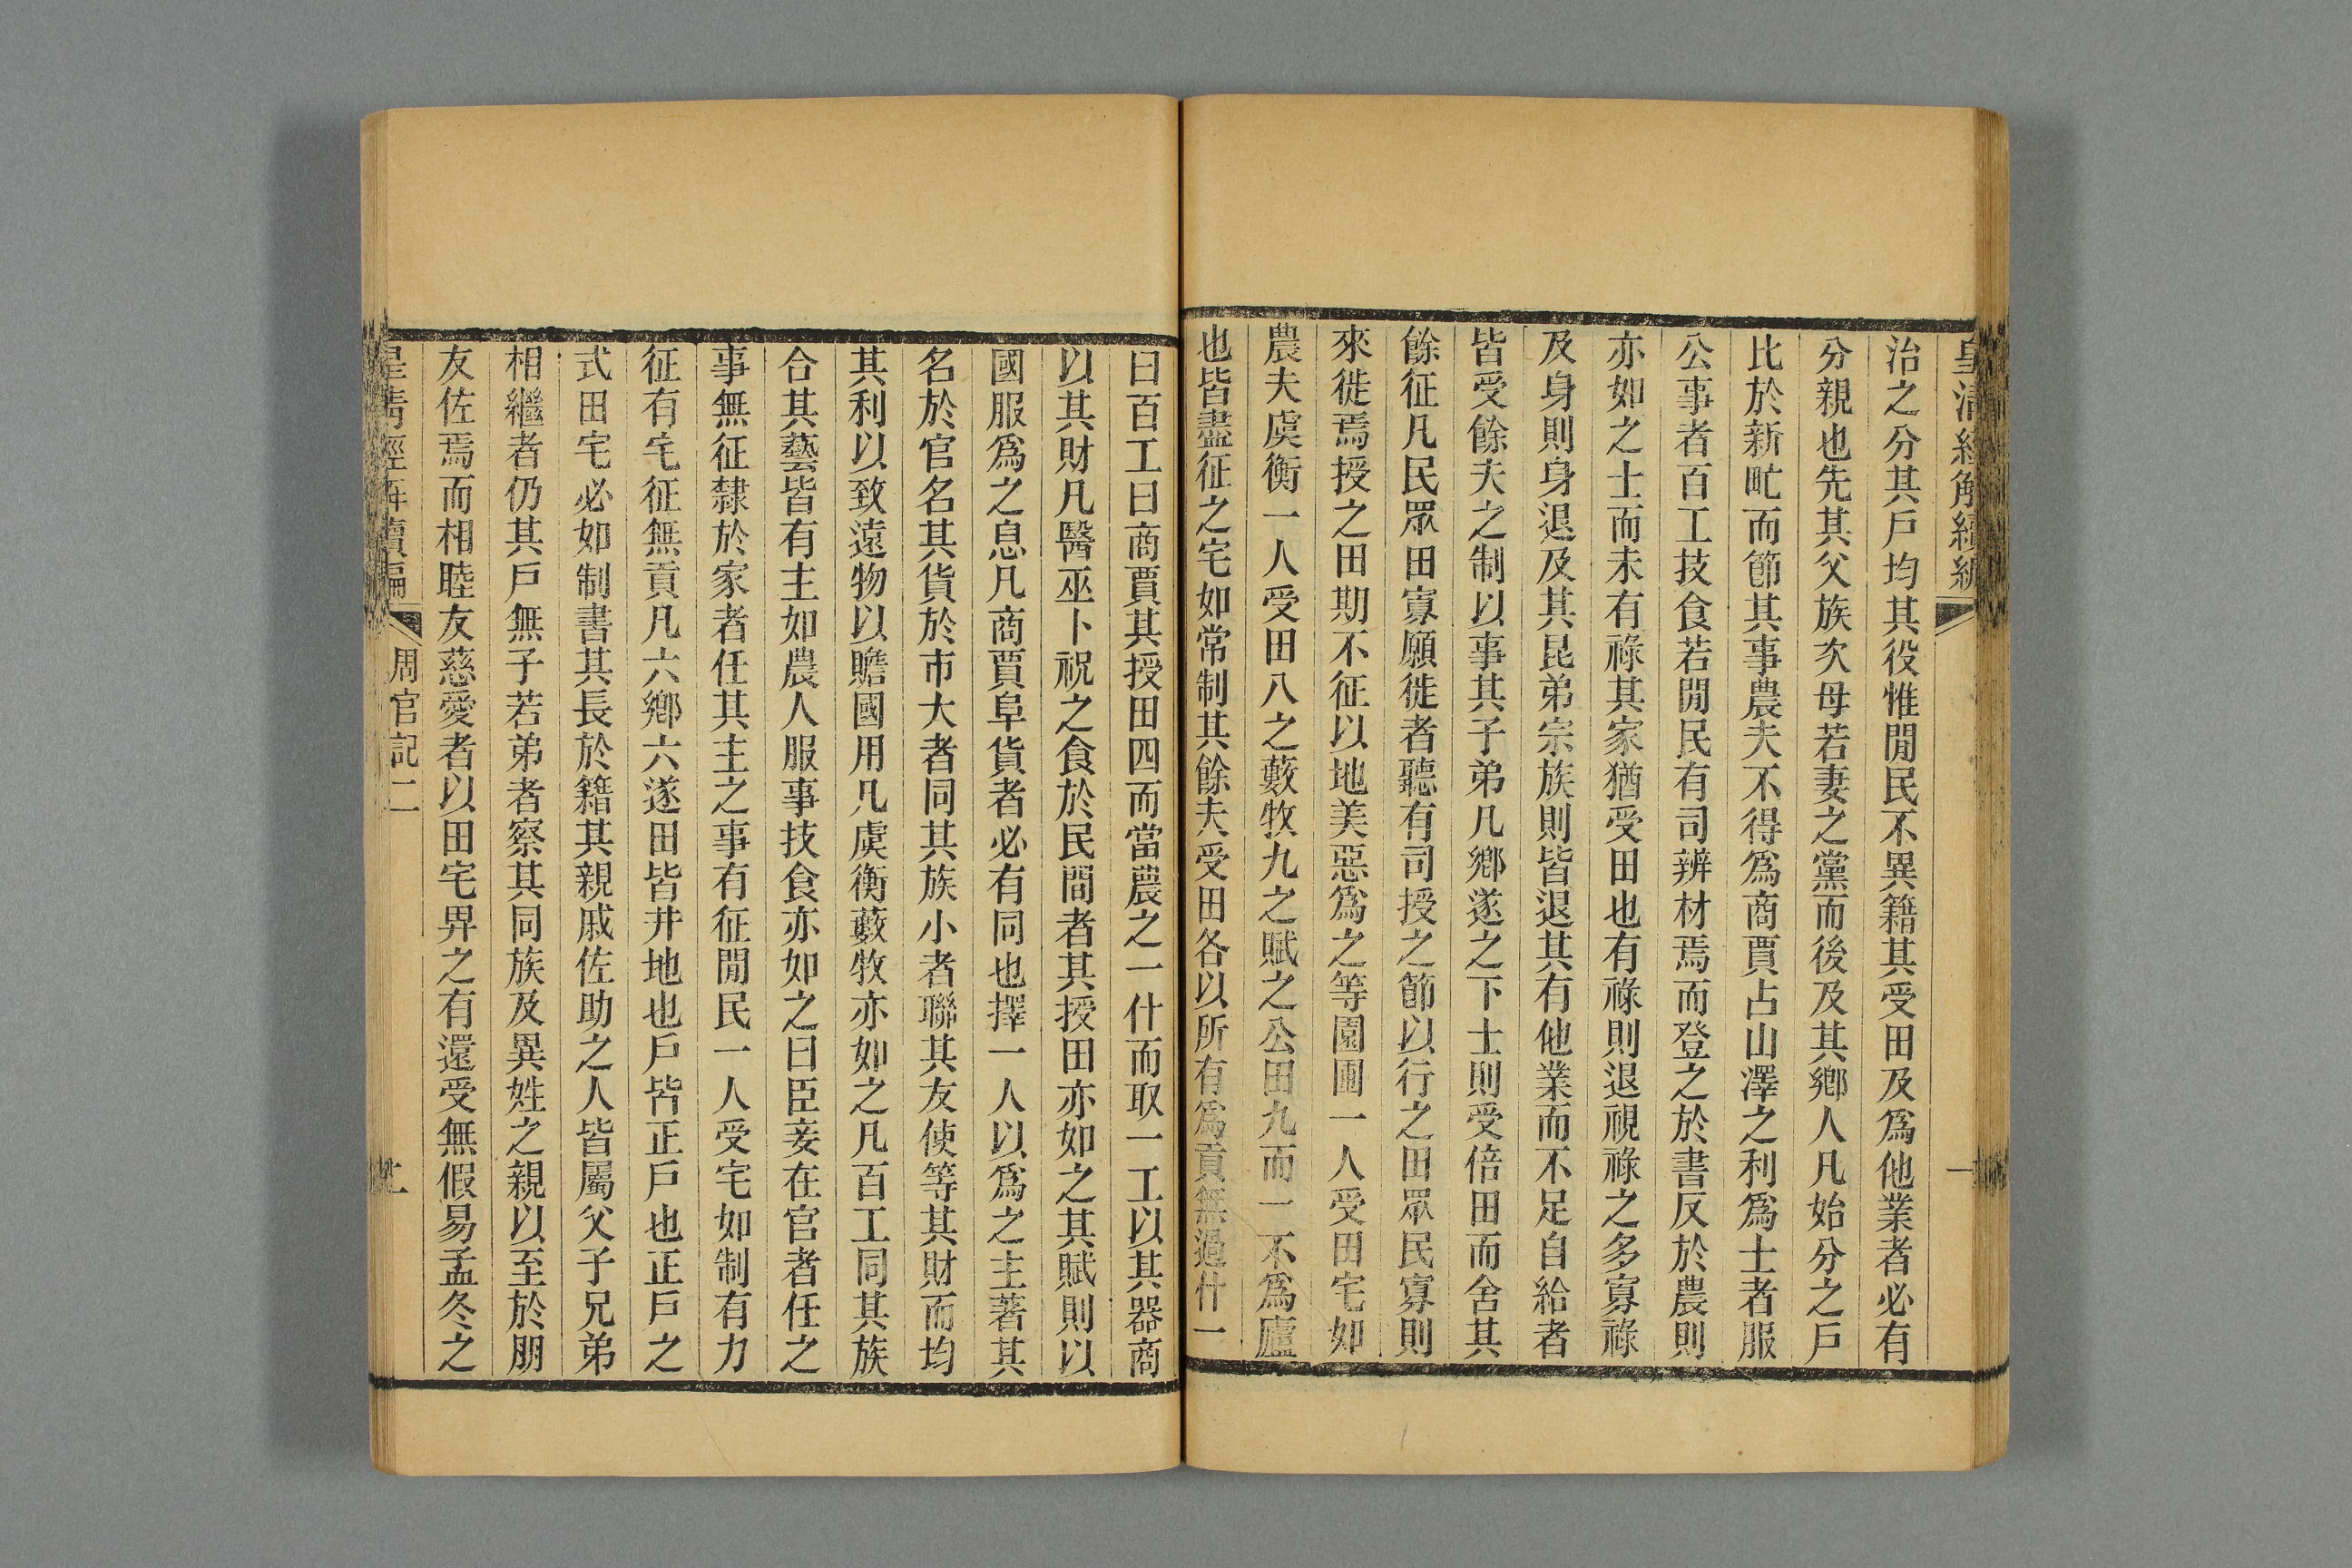 皇清經解續編
一
治之分其戶均其役惟閒民不異籍其受田及爲他業者必有
分親也先其父族次母若妻之黨而後及其鄉人凡始分之戶
比於新甿而節其事農夫不得爲商賈占山澤之利爲士者服
公事者百工技食若閒民有司辨材焉而登之於書反於農則
亦如之士而未有祿其家猶受田也有祿則退視祿之多寡祿
及身則身退及其昆弟宗族則皆退其有他業而不足自給者
皆受餘夫之制以事其子弟凡鄉遂之下士則受倍田而舍其
餘征凡民眾田寡願徙者聽有司授之節以行之田眾民寡則
來徙焉授之田期不征以地美惡爲之等園圃一人受田宅如
農夫虞衡一人受田八之藪牧九之賦之公田九而一不爲廬
也皆盡征之宅如常制其餘夫受田各以所有爲貢無過什一
曰百工曰商賈其授田四而當農之一什而取一工以其器商
以其財凡醫巫卜祝之食於民間者其授田亦如之其賦則以
國服爲之息凡商賈阜貨者必有同也擇一人以爲之主著其
名於官名其貨於市大者同其族小者聯其友使等其財而均
其利以致遠物以贍國用凡虞衡藪牧亦如之凡百工同其族
合其藝皆有主如農人服事技食亦如之曰臣妾在官者任之
事無征隸於家者任其主之事有征閒民一人受宅如制有力
征有宅征無貢凡六鄉六遂田皆井地也戶皆正戶也正戶之
式田宅必如制書其長於籍其親戚佐助之人皆屬父子兄弟
相繼者仍其戶無子若弟者察其同族及異姓之親以至於朋
友佐焉而相睦友慈愛者以田宅畀之有還受無假易孟冬之
皇清經解續編
周官記二